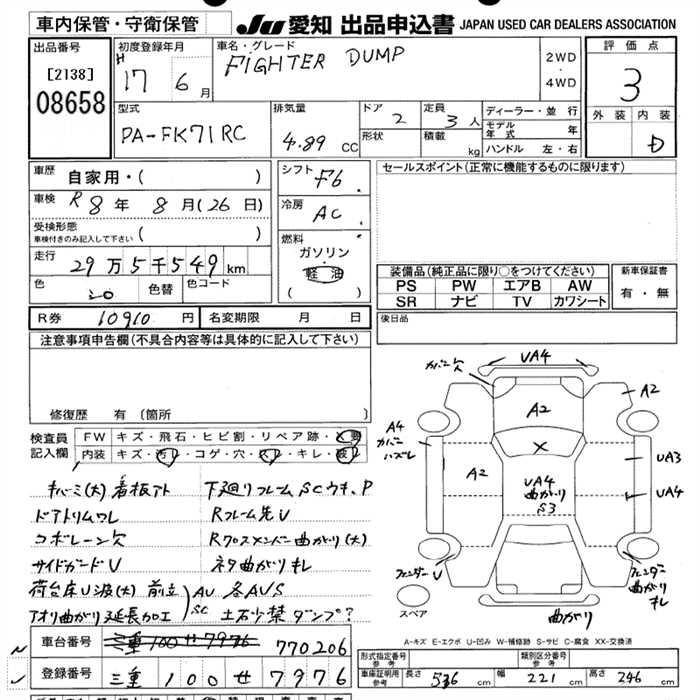 車内保管・守衛保管 JU 愛知 出品申込書 JAPAN USED CAR DEALERS ASSOCIATION
出品番号
[2138]
08658
初度登録年月
H 17 6 月
車名・グレード
FIGHTER DUMP
2WD
・
4WD
評価点
3
外装 内装
D
型式
PA-FK71RC
排気量
4.89 CC
ドア
2
定員
3 人
形状
積載
kg
ディーラー・並行
モデル年式 年
ハンドル 左・右
車歴 自家用・( )
車検 R 8 年 8 月 (26 日)
受検形態
車検付きのみ記入して下さい ( )
走行 29万5千549 km
色 シロ 色替 色コード
シフト F6
冷房 AC
燃料
ガソリン・
軽油
( )
セールスポイント(正常に機能するものに限ります)
装備品(純正品に限り○をつけてください)
PS PW エアB AW
SR ナビ TV カワシート
新車保証書
有・無
R券 10910 円 名変期限 月 日
後日品
注意事項申告欄(不具合内容等は具体的に記入して下さい)
修復歴 有 (箇所
検査員記入欄
FW キズ・飛石・ヒビ割・リペア跡・×要
内装 キズ・汚レ・コゲ・穴・スレ・キレ・破レ
キバミ(大) 看板アト 下廻りフレームSCウキ、P
ドアトリムワレ Rフレーム先U
コボレーン欠 Rクロスメンバー曲がり(大)
サイドガードU ネタ曲がりキレ
荷台床U波(大) 前立 AU 各AUS
アオリ曲がり延長加工 SC 土石少禁ダンプ?
車台番号 770206
登録番号 三重 100 せ 7976
カバー欠
UA4
A2
A2
A4
カバー
ハズレ
X
A2
UA3
UA4
UA4
曲がり
S3
フェンダーU
フェンダー
曲がり
キレ
スペア
曲がり
A-キズ E-エクボ U-凹み W-補修跡 S-サビ C-腐食 XX-交換済
形式指定番号
参考
類別区分番号
参考
車庫証明用
参考
長さ 536 cm 幅 221 cm 高さ 246 cm